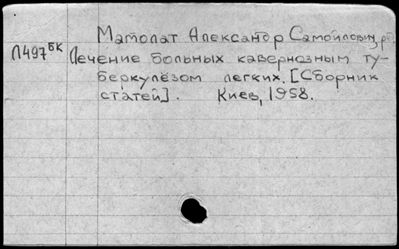 Мамолат Александр Самойлович, ред.
Л497 БК Лечение больных кавернозным ту-
беркулёзом легких. [Сборник
статей]. Киев, 1958.